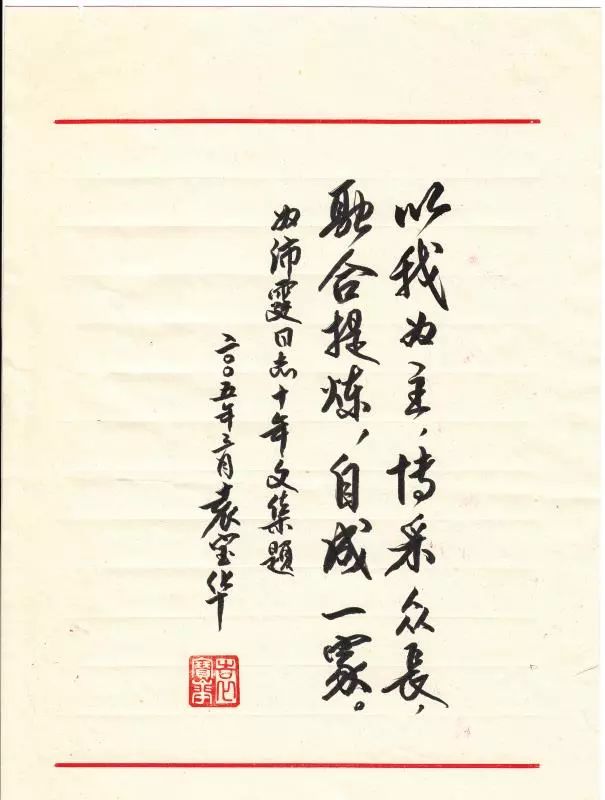 以我为主,博采众長,
融合提炼,自成一家。
为沛同志十年文集题
二〇〇五年三月 袁宝华
袁寶華